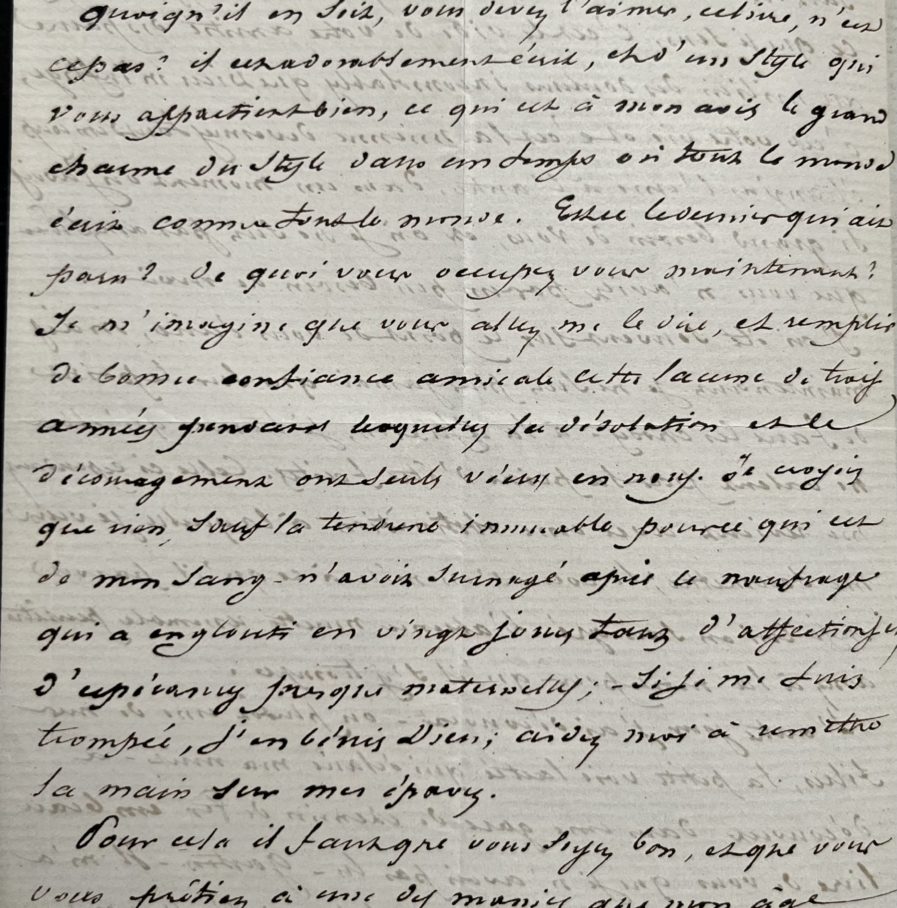 quoiqu'il en soit, vous devez l'aimer, ce livre, n'est
ce pas? il est adorablement écrit, et d'un style qui
vous appartient bien, ce qui est à mon avis le grand
charme du style dans un temps où tout le monde
écrit comme tout le monde. Est ce le dernier qui ait
paru? de quoi vous occupez vous maintenant?
Je m'imagine que vous allez me le dire, et remplir
de bonne confiance amicale cette lacune de trois
années pendant lesquelles la désolation et le
découragement ont seuls vécu en nous. Je croyois
que rien, sauf la tendresse immuable pour ce qui est
de mon sang - n'avoit surnagé après ce naufrage
qui a englouti en vingt jours tant d'affections,
d'espérances presque maternelles; - si je me suis
trompée, j'en bénis Dieu; aidez moi à remettre
la main sur mes épaves.
Pour cela il faut que vous soyez bon, et que vous
vous prêtiez à une des manies que mon âge